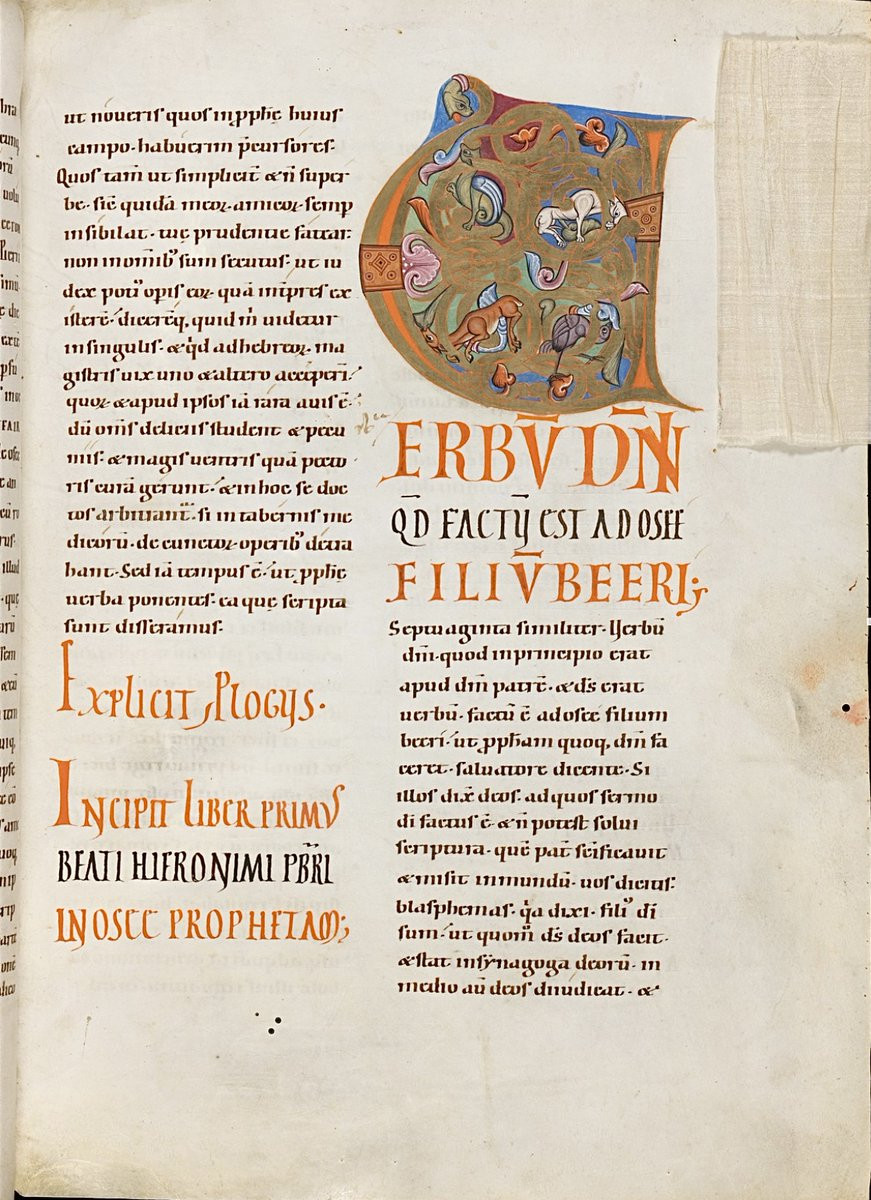 ut noveris quos in pphe huius
campo habuerim pcursores.
Quos tam ut simplicit & n super
be. sic quida meor amicor semp
insibilat. tue prudentie fatear.
non in omib sum secutus. ut iu
dex poti opis eor qua intpres ex
istere. dicereq, quid m videtur
in singulis. & qd ab hebreor ma
gistris vix uno & altero acceperi.
quor & apud ipsos ia rara avis e.
du oms deliciis student & pecu
niis. & magis ventris qua pecto
ris cura gerunt. & in hoc se doc
tos arbitrant. si in tabernis me
dicoru. de cunctor operib detra
hant. Sed ia tempus e. ut pphie
verba ponentes. ea que scripta
sunt disseramus.
EXPLICIT PLOGUS.
INCIPIT LIBER PRIMUS
BEATI HIERONIMI PBRI
IN OSEE PROPHETAM;
VERBV DNI
QD FACTU EST AD OSEE
FILIVM BEERI;
Septuaginta similiter. Verbu
dni. quod in principio erat
apud dm patre. & ds erat
verbu. factu e ad osee filium
beeri. ut ppham quoq, dm fa
ceret. salvatore dicente. Si
illos dix deos. ad quos sermo
di factus e. & n potest solvi
scriptura. que pat scificavit
& misit in mundu. vos dicitis.
blasphemas. qa dixi. fili di
sum. ut quom ds deos facit.
& stat in synagoga deoru. in
medio au deos diiudicat. &